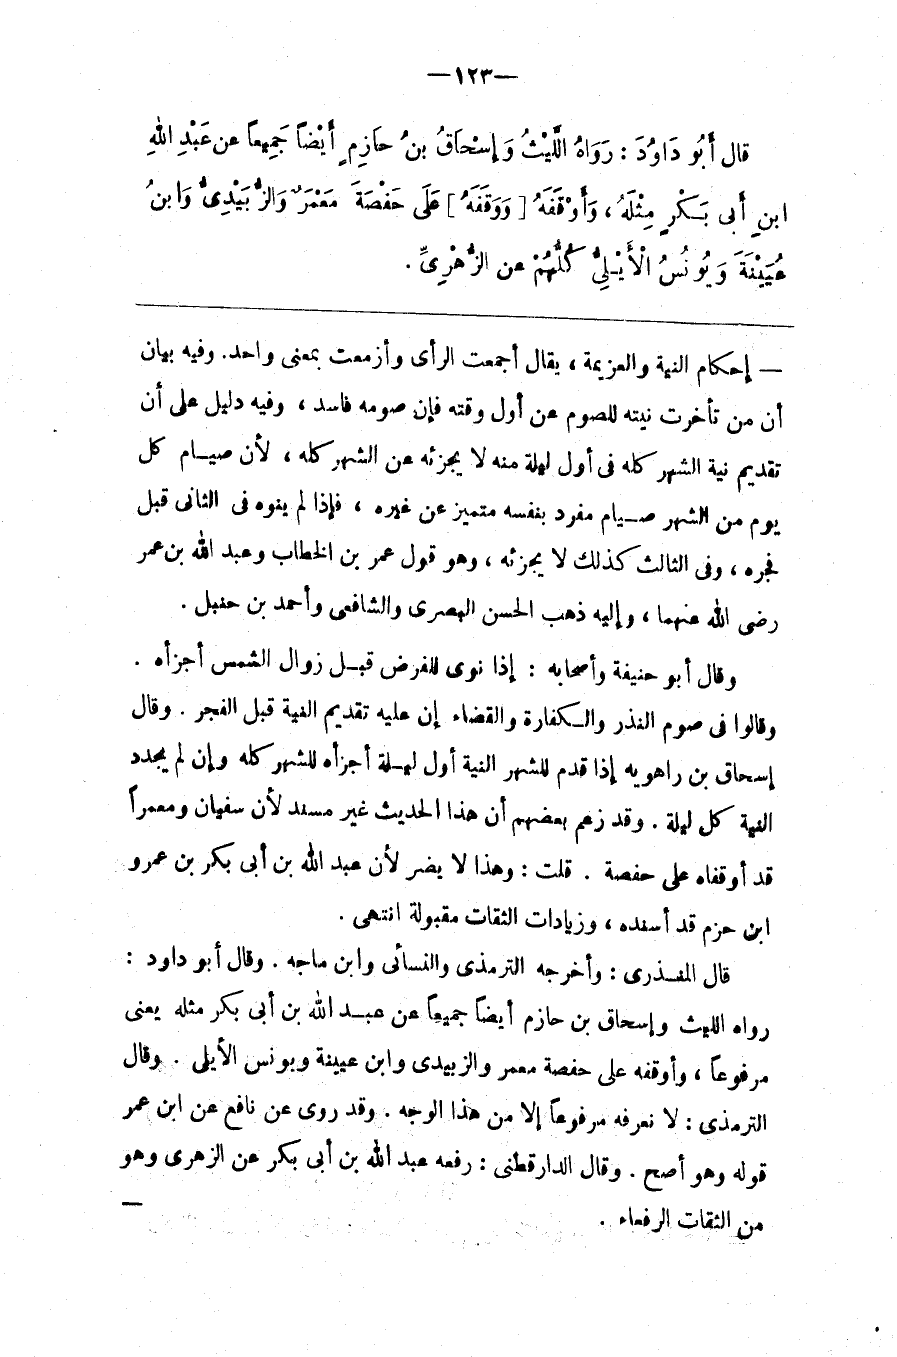 —١٢٣—
قال أَبُو دَاوُدَ : رَوَاهُ اللَّيْثُ وَإِسْحَاقُ بنُ حَازِمٍ أَيْضاً جَمِيعاً عن عَبْدِ اللهِ
ابنِ أَبى بَكْرٍ مِثْلَهُ ، وَأَوْقَفَهُ [ وَوَقَفَهُ ] عَلَى حَفْصَةَ مَعْمَرٌ وَالزُّبَيْدِىُّ وَابنُ
عُيَيْنَةَ وَيُونُسُ الْأَيْلِىُّ كُلُّهُمْ عن الزُّهْرِىِّ .
— إحكام النية والعزيمة ، يقال أجمعت الرأى وأزمعت بمعنى واحد. وفيه بيان
أن من تأخرت نيته للصوم عن أول وقته فإن صومه فاسد ، وفيه دليل على أن
تقديم نية الشهر كله فى أول ليلة منه لا يجزئه عن الشهر كله ، لأن صيام كل
يوم من الشهر صيام مفرد بنفسه متميز عن غيره ، فإذا لم ينوه فى الثانى قبل
فجره ، وفى الثالث كذلك لا يجزئه ، وهو قول عمر بن الخطاب وعبد الله بن عمر
رضى الله عنهما ، وإليه ذهب الحسن البصرى والشافعى وأحمد بن حنبل .
وقال أبو حنيفة وأصحابه : إذا نوى للفرض قبل زوال الشمس أجزأه .
وقالوا فى صوم النذر والكفارة والقضاء إن عليه تقديم النية قبل الفجر . وقال
إسحاق بن راهويه إذا قدم للشهر النية أول ليلة أجزأه للشهر كله وإن لم يجدد
النية كل ليلة . وقد زعم بعضهم أن هذا الحديث غير مسند لأن سفيان ومعمراً
قد أوقفاه على حفصة . قلت : وهذا لا يضر لأن عبد الله بن أبى بكر بن عمرو
ابن حزم قد أسنده ، وزيادات الثقات مقبولة انتهى .
قال المنذرى : وأخرجه الترمذى والنسائى وابن ماجه . وقال أبو داود :
رواه الليث وإسحاق بن حازم أيضاً جميعاً عن عبد الله بن أبى بكر مثله يعنى
مرفوعاً ، وأوقفه على حفصة معمر والزبيدى وابن عيينة ويونس الأيلى . وقال
الترمذى : لا نعرفه مرفوعاً إلا من هذا الوجه . وقد روى عن نافع عن ابن عمر
قوله وهو أصح . وقال الدارقطنى : رفعه عبد الله بن أبى بكر عن الزهرى وهو
من الثقات الرفعاء . —